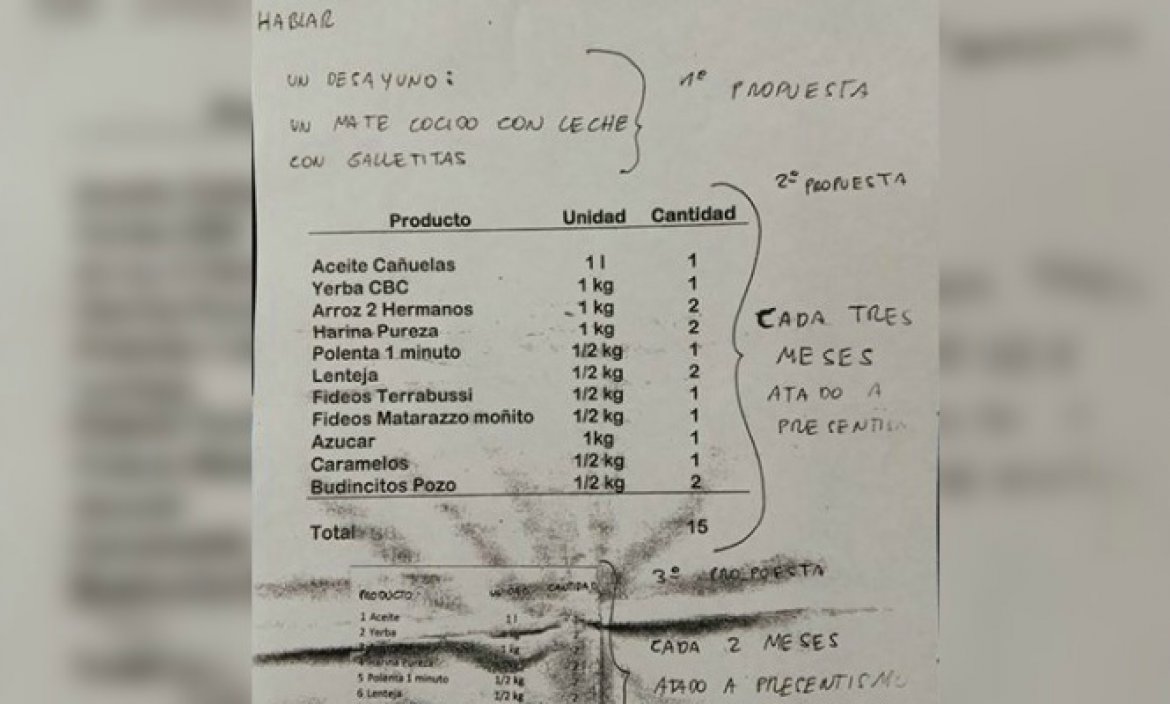 HABLAR
UN DESAYUNO:
UN MATE COCIDO CON LECHE
CON GALLETITAS
1º PROPUESTA
2º PROPUESTA
Producto Unidad Cantidad
Aceite Cañuelas 1 l 1
Yerba CBC 1 kg 1
Arroz 2 Hermanos 1 kg 2
Harina Pureza 1 kg 2
Polenta 1 minuto 1/2 kg 1
Lenteja 1/2 kg 2
Fideos Terrabussi 1/2 kg 1
Fideos Matarazzo moñito 1/2 kg 1
Azucar 1kg 1
Caramelos 1/2 kg 1
Budincitos Pozo 1/2 kg 2
Total 15
CADA TRES
MESES
ATADO A
PRESENTISM
3º PROPUESTA
PRODUCTO UNIDAD CANTIDAD
1 Aceite 1 l
2 Yerba
1 kg
4 Harina Pureza
5 Polenta 1 minuto 1/2 kg
6 Lenteja 1/2 kg
CADA 2 MESES
ATADO A PRESENTISMO